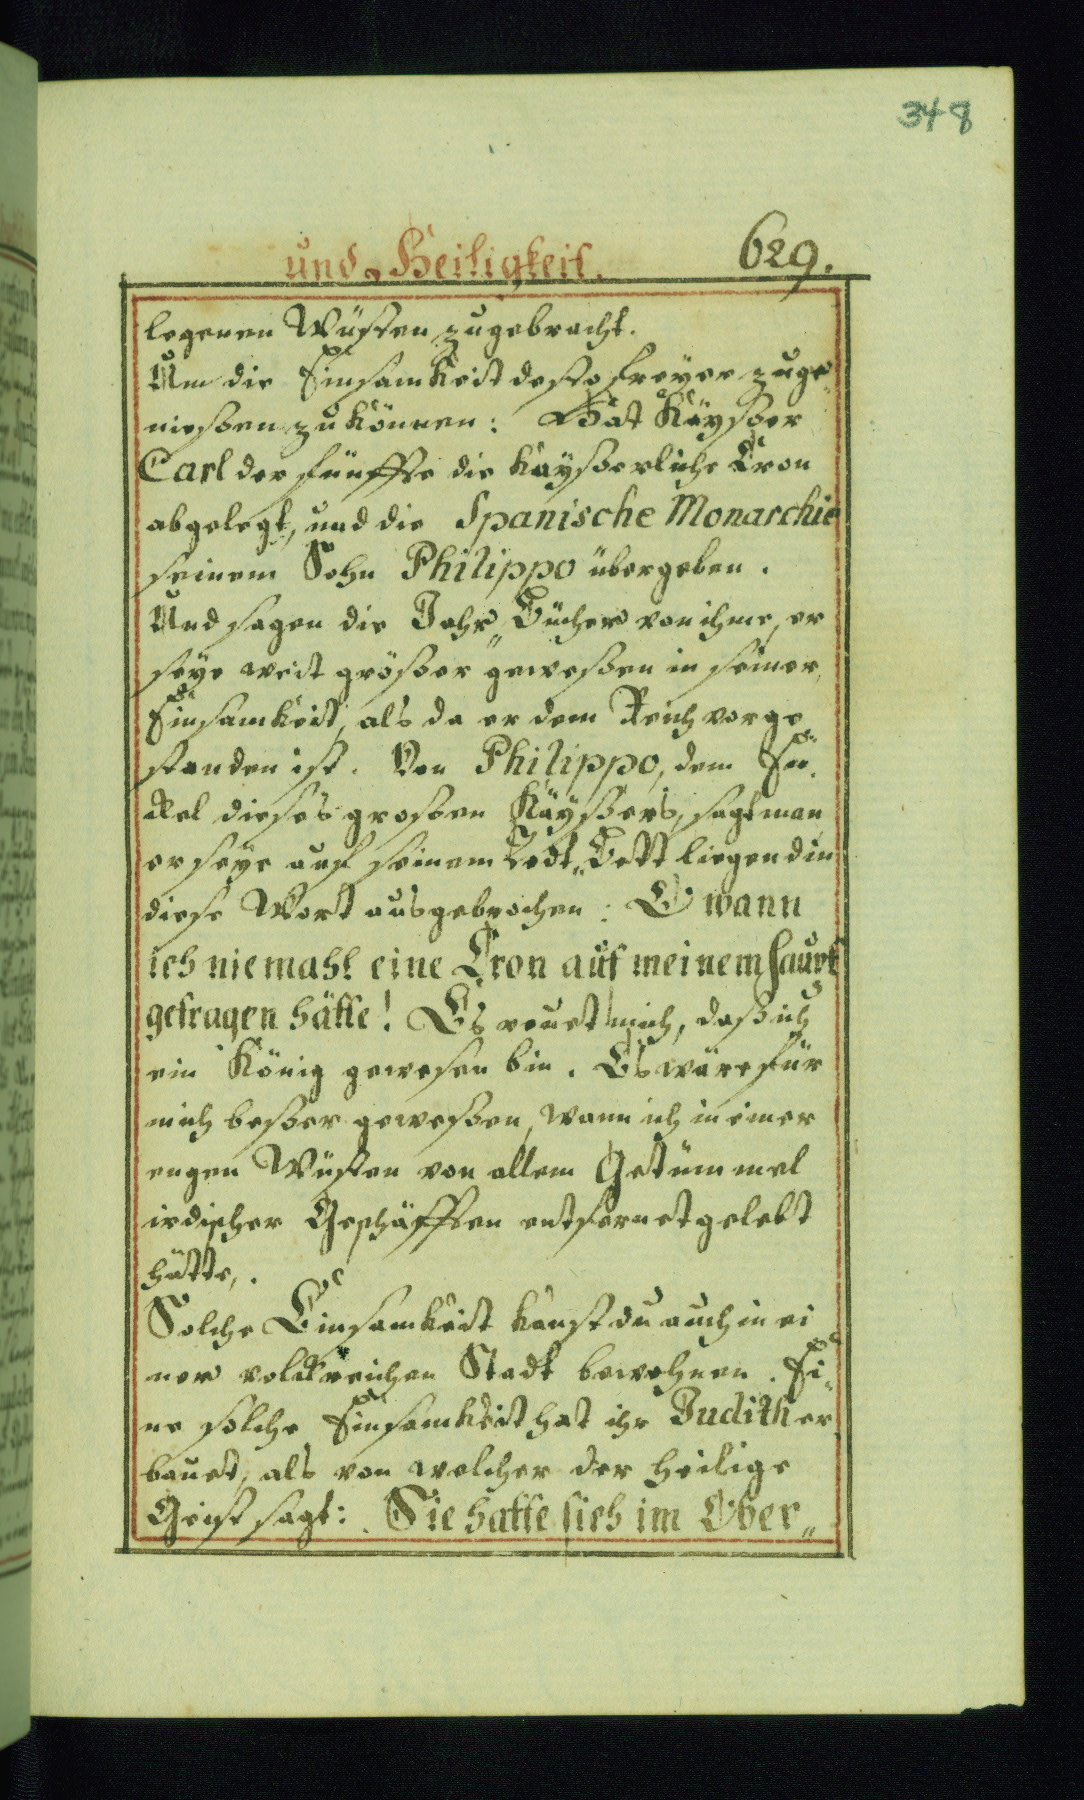 348
und Heiligkeit. 629.
legenen Wüsten zugebracht.
Um die Einsamkeit desto freyer zuge„
niesßen zu können: Hat Käysßer
Carl der fünffte die Kaysßerliche Cron
abgelegt, und die Spanische Monarchie
seinem Sohn Philippo übergeben.
Und sagen die Jahr„Bücher von ihme, er
seye weit größer gewesßen in seiner
Einsamkeit, als da er dem Reich vorge„
standen ist. Von Philippo, dem En„
ckel dieses grosßen Käysßers, sagt man
er seye auf seinem Todt„Bett liegend in
diese Wort ausgebrochen: O wann
ich niemahl eine Cron auf meinem Haupt
getragen hätte! Es reuet mich, daß ich
ein König gewesen bin. Es wäre für
mich besßer gewesßen, wann ich in einer
engen Wüsten von allem Getümmel
irdischer Geschäfften entfernet gelebt
hätte.
Solche Einsamkeit kanst du auch in ei
ner volckreichen Stadt bewohnen. Ei„
ne solche Einsamkeit hat ihr Judith er
bauet, als von welcher der heilige
Geist sagt: Sie hatte sich im Ober„